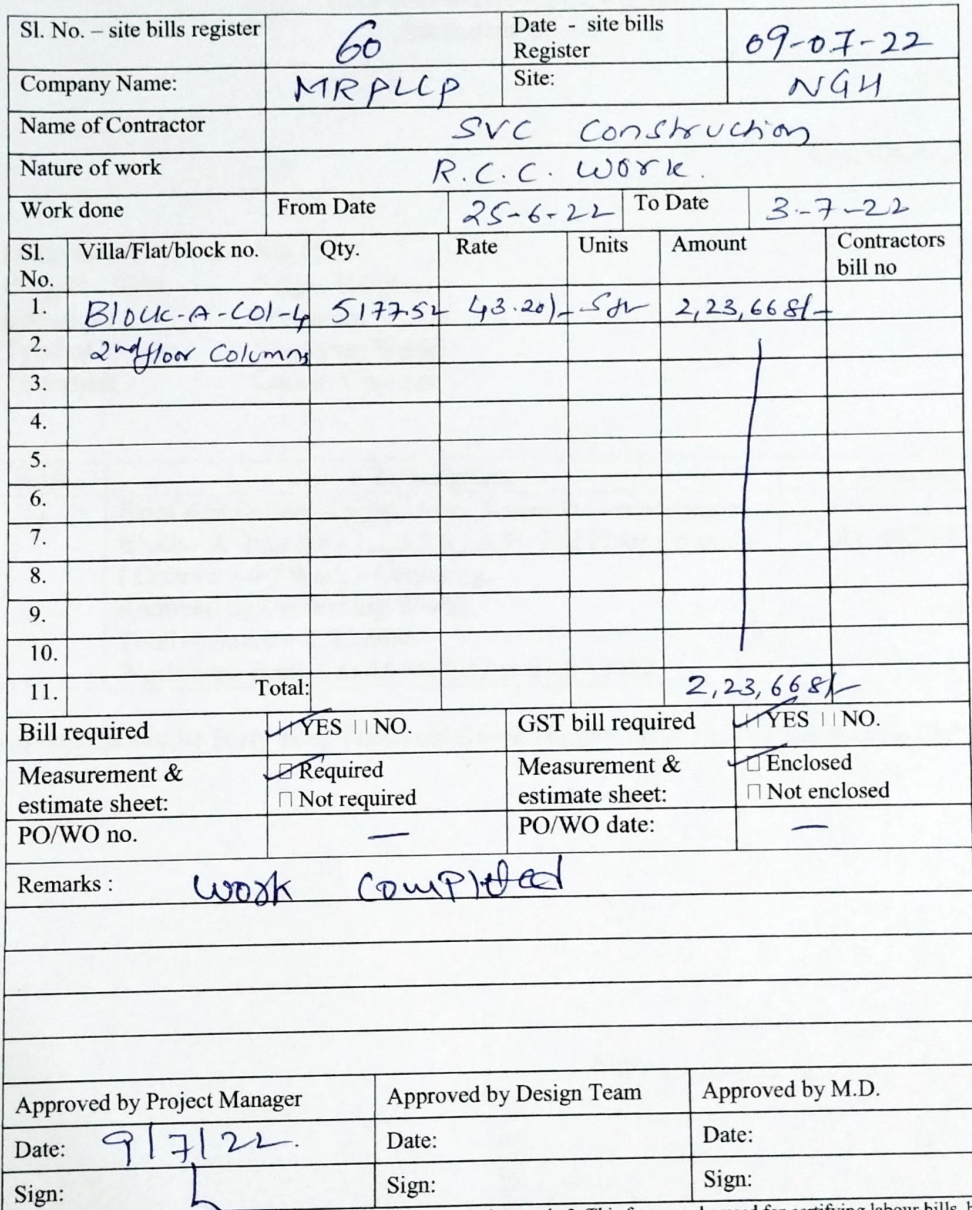 Sl. No. – site bills register 60 Date - site bills Register 09-07-22
Company Name: MRPLLP Site: NGH
Name of Contractor SVC Construction
Nature of work R.C.C. Work.
Work done From Date 25-6-22 To Date 3-7-22
Sl. No. Villa/Flat/block no. Qty. Rate Units Amount Contractors bill no
1. Block-A-Col-4 5177.52 43.20/- Sft 2,23,668/-
2. 2nd floor Columns
3.
4.
5.
6.
7.
8.
9.
10.
11. Total: 2,23,668/-
Bill required YES NO. GST bill required YES NO.
Measurement & estimate sheet: Required Measurement & estimate sheet: Enclosed
Not required Not enclosed
PO/WO no. — PO/WO date: —
Remarks : work completed
Approved by Project Manager Approved by Design Team Approved by M.D.
Date: 9/7/22. Date: Date:
Sign: Sign: Sign: